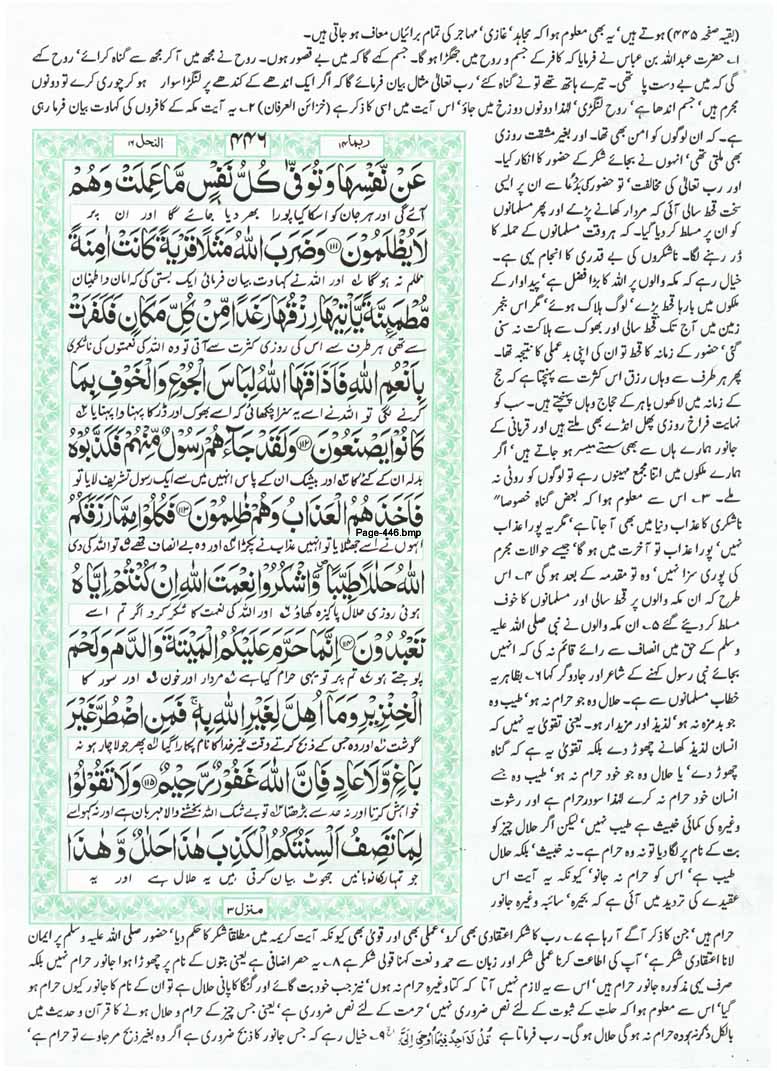 (بقیہ صفحہ ۴۴۵) ہوتے ہیں‘ یہ بھی معلوم ہوا کہ مجاہد‘ غازی‘ مہاجر کی تمام برائیاں معاف ہو جاتی ہیں۔
۱۔ حضرت عبداللہ بن عباس نے فرمایا کہ کافر کے جسم و روح میں جھگڑا ہو گا۔ جسم کہے گا کہ میں بے قصور ہوں۔ روح نے مجھ میں آ کر مجھ سے گناہ کرائے‘ روح کہے
گی کہ میں بے دست پا تھی۔ تیرے ہاتھ تھے تو نے گناہ کئے‘ رب تعالیٰ مثال بیان فرمائے گا کہ اگر ایک اندھے کے کندھے پر لنگڑا سوار ہو کر چوری کرے تو دونوں
مجرم ہیں‘ جسم اندھا ہے‘ روح لنگڑی‘ لہٰذا دونوں دوزخ میں جاؤ‘ اس آیت میں اسی کا ذکر ہے (خزائن العرفان) ۲۔ یہ آیت مکہ کے کافروں کی کہاوت بیان فرما رہی
ہے۔ کہ ان لوگوں کو امن بھی تھا۔ اور بغیر مشقت روزی
بھی ملتی تھی‘ انہوں نے بجائے شکر کے حضور کا انکار کیا۔
اور رب تعالیٰ کی مخالفت‘ تو حضور کی بددعا سے ان پر ایسی
سخت قحط سالی آئی کہ مردار کھانے پڑے اور پھر مسلمانوں
کو ان پر مسلط کر دیا گیا۔ کہ ہر وقت مسلمانوں کے حملہ کا
ڈر رہنے لگا۔ ناشکروں کی بے قدری کا انجام یہی ہے۔
خیال رہے کہ مکہ والوں پر اللہ کا بڑا فضل ہے‘ پیداوار کے
ملکوں میں بارہا قحط پڑے‘ لوگ ہلاک ہوئے‘ مگر اس بنجر
زمین میں آج تک قحط سالی اور بھوک سے ہلاکت نہ سنی
گئی‘ حضور کے زمانہ کا قحط تو ان کی اپنی بدعملی کا نتیجہ تھا۔
پھر ہر طرف سے وہاں رزق اس کثرت سے پہنچتا ہے کہ حج
کے زمانہ میں لاکھوں باہر کے حجاج وہاں پہنچتے ہیں۔ سب کو
نہایت فراخ روزی پھل انڈے بھی ملتے ہیں اور قربانی کے
جانور ہمارے ہاں سے بھی سستے میسر ہو جاتے ہیں‘ اگر
ہمارے ملکوں میں اتنا مجمع مہینوں رہے تو لوگوں کو روٹی نہ
ملے۔ ۳۔ اس سے معلوم ہوا کہ بعض گناہ خصوصا"
ناشکری کا عذاب دنیا میں بھی آ جاتا ہے‘ مگر یہ پورا عذاب
نہیں‘ پورا عذاب تو آخرت میں ہو گا‘ جیسے حوالات مجرم
کی پوری سزا نہیں‘ وہ تو مقدمہ کے بعد ہو گی ۴۔ اس
طرح کہ ان مکہ والوں پر قحط سالی اور مسلمانوں کا خوف
مسلط کر دیئے گئے ۵۔ ان مکہ والوں نے نبی صلی اللہ علیہ
وسلم کے حق میں انصاف سے رائے قائم نہ کی کہ انہیں
بجائے نبی رسول کہنے کے شاعر اور جادوگر کہا ۶۔ بظاہر یہ
خطاب مسلمانوں سے ہے۔ حلال وہ جو حرام نہ ہو‘ طیب وہ
جو بدمزہ نہ ہو‘ لذیذ اور مزیدار ہو۔ یعنی تقویٰ یہ نہیں کہ
انسان لذیذ کھانے چھوڑ دے بلکہ تقویٰ یہ ہے کہ گناہ
چھوڑ دے‘ یا حلال وہ جو خود حرام نہ ہو‘ طیب وہ جسے
انسان خود حرام نہ کرے لہٰذا سود حرام ہے اور رشوت
وغیرہ کی کمائی خبیث ہے طیب نہیں‘ لیکن اگر حلال چیز کو
بت کے نام پر لگا دیا تو نہ وہ حرام ہے۔ نہ خبیث‘ بلکہ حلال
طیب ہے‘ اس کو حرام نہ جانو‘ کیونکہ یہ آیت اس
عقیدے کی تردید میں آئی ہے کہ بحیرہ‘ سائبہ وغیرہ جانور
النحل ۱۶
۴۴۶
ربما ۱۴
عَنْ نَّفْسِهَا وَتُوَفّٰى كُلُّ نَفْسٍ مَّا عَمِلَتْ وَهُمْ
آئے گی اور ہر جان کو اس کا کیا پورا بھر دیا جائے گا اور ان پر
لَا يُظْلَمُوْنَ ۝۱۱۱ وَضَرَبَ اللّٰهُ مَثَلًا قَرْيَةً كَانَتْ اٰمِنَةً
ظلم نہ ہو گا اور اللہ نے کہاوت بیان فرمائی ایک بستی کی کہ امان و اطمینان
مُّطْمَىِٕنَّةً يَّاْتِيْهَا رِزْقُهَا رَغَدًا مِّنْ كُلِّ مَكَانٍ فَكَفَرَتْ
سے تھی ہر طرف سے اس کی روزی کثرت سے آتی تو وہ اللہ کی نعمتوں کی ناشکری
بِاَنْعُمِ اللّٰهِ فَاَذَاقَهَا اللّٰهُ لِبَاسَ الْجُوْعِ وَالْخَوْفِ بِمَا
کرنے لگی تو اللہ نے اسے یہ سزا چکھائی کہ اسے بھوک اور ڈر کا پہناوا پہنایا
كَانُوْا يَصْنَعُوْنَ ۝۱۱۲ وَلَقَدْ جَآءَهُمْ رَسُوْلٌ مِّنْهُمْ فَكَذَّبُوْهُ
بدلہ ان کے کئے کا اور بیشک ان کے پاس انہیں میں سے ایک رسول تشریف لایا تو
فَاَخَذَهُمُ الْعَذَابُ وَهُمْ ظٰلِمُوْنَ ۝۱۱۳ فَكُلُوْا مِمَّا رَزَقَكُمُ
Page-446.bmp
انہوں نے اسے جھٹلایا تو انہیں عذاب نے پکڑا اور وہ بے انصاف تھے تو اللہ کی دی
اللّٰهُ حَلٰلًا طَيِّبًا وَّاشْكُرُوْا نِعْمَتَ اللّٰهِ اِنْ كُنْتُمْ اِيَّاهُ
ہوئی روزی حلال پاکیزہ کھاؤ اور اللہ کی نعمت کا شکر کرو اگر تم اسے
تَعْبُدُوْنَ ۝۱۱۴ اِنَّمَا حَرَّمَ عَلَيْكُمُ الْمَيْتَةَ وَالدَّمَ وَلَحْمَ
پوجتے ہو تم پر تو یہی حرام کیا ہے مردار اور خون اور سور کا
الْخِنْزِيْرِ وَمَآ اُهِلَّ لِغَيْرِ اللّٰهِ بِهٖ ۚ فَمَنِ اضْطُرَّ غَيْرَ
گوشت اور وہ جس کے ذبح کرتے وقت غیر خدا کا نام پکارا گیا پھر جو لاچار ہو نہ
بَاغٍ وَّلَا عَادٍ فَاِنَّ اللّٰهَ غَفُوْرٌ رَّحِيْمٌ ۝۱۱۵ وَلَا تَقُوْلُوْا
خواہش کرتا اور نہ حد سے بڑھتا تو بے شک اللہ بخشنے والا مہربان ہے اور نہ کہو اسے
لِمَا تَصِفُ اَلْسِنَتُكُمُ الْكَذِبَ هٰذَا حَلٰلٌ وَّهٰذَا
جو تمہاری زبانیں جھوٹ بیان کرتی ہیں یہ حلال ہے اور یہ
منزل ۳
حرام ہیں‘ جن کا ذکر آگے آ رہا ہے ۷۔ رب کا شکر اعتقادی بھی کرو‘ عملی بھی اور قولی بھی کیونکہ آیت کریمہ میں مطلقاً شکر کا حکم دیا‘ حضور صلی اللہ علیہ وسلم پر ایمان
لانا اعتقادی شکر ہے‘ آپ کی اطاعت کرنا عملی شکر اور زبان سے حمد و نعت کہنا قولی شکر ہے ۸۔ یہ حصر اضافی ہے یعنی بتوں کے نام پر چھوڑا ہوا جانور حرام نہیں بلکہ
صرف یہی مذکورہ جانور حرام ہیں‘ اس سے یہ لازم نہیں آتا کہ کتا وغیرہ حرام نہ ہوں‘ نیز جب خود بت گائے اور گنگا کا پانی حلال ہے تو ان کے نام کا جانور کیوں حرام ہو
گیا‘ اس سے معلوم ہوا کہ حلت کے ثبوت کے لئے نص ضروری نہیں‘ حرمت کے لئے نص ضروری ہے‘ یعنی جس چیز کے حرام و حلال ہونے کا قرآن و حدیث میں
بالکل ذکر نہ ہو وہ حرام نہ ہو گی حلال ہو گی۔ رب فرماتا ہے قُلْ لَّآ اَجِدُ فِيْمَآ اُوْحِيَ اِلَيَّ الخ ۹۔ خیال رہے کہ جس جانور کا ذبح ضروری ہے اگر وہ بغیر ذبح مر جاوے تو حرام ہے‘